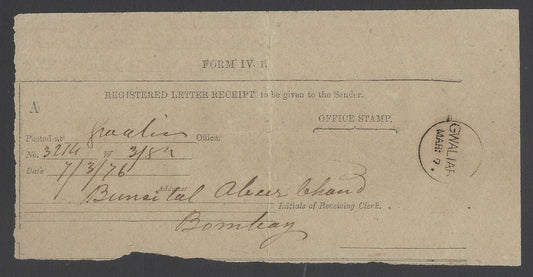 FORM IV. R
REGISTERED LETTER RECEIPT to be given to the Sender.
A
OFFICE STAMP.
Posted at Gwalior Office.
No. 3214 W 3/8
Date 7/3/76
GWALIAR
MAR: 7.
Address
Bunsilal Abeer Chand
Initials of Receiving Clerk.
Bombay